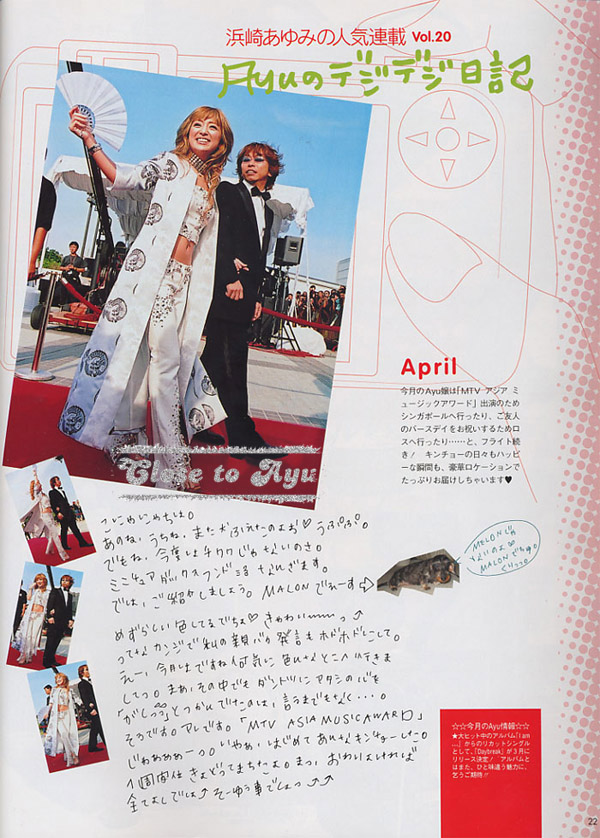 浜崎あゆみの人気連載 Vol.20
Ayuのデジデジ日記
April
今月のAyu嬢は「MTV アジア ミ
ュージックアワード」出演のため
シンガポールへ行ったり、ご友人
のバースデイをお祝いするためロ
スへ行ったり……と、フライト続
き! キンチョーの日々もハッピ
ーな瞬間も、豪華ロケーションで
たっぷりお届けしちゃいます♥
Close to Ayu
こにゃにゃちは。
あのね、うちね、またがふえたのよぉ♡うぷぷ。
でもね、今度はチワワじゃないのさ。
ミニチュアダックスフンド なんざます。
では、ご紹介しましょう。MALONでぇーす⇨
MELONじゃ
ないのよ
MALONですの。
めずらしい色してるでちょ♡ きゃわいー
ってなカンジで私の親バカ発言もホドホドにして。
えー、今月はですね何気に色んなとこへ行きま
してっ。まぁ、その中でもダントツにアタシの心を
「がしっっ」とつかんでたのは、言うまでもなく・・・。
そのです。アレです。「MTV ASIA MUSIC AWARD」
じゃわぁぁーっ。いやぁ、はじめてあんなキンチョーした。
1週間位 きんどってまちたよ。まっ、おわりよければ
全てよしでしょ そーゆう事でしょっ
☆☆今月のAyu情報☆☆
★大ヒット中のアルバム『I am
...』からのリカットシングル
として、『Daybreak』が3月に
リリース決定! アルバムと
はまた、ひと味違う魅力に、
乞うご期待!!
22